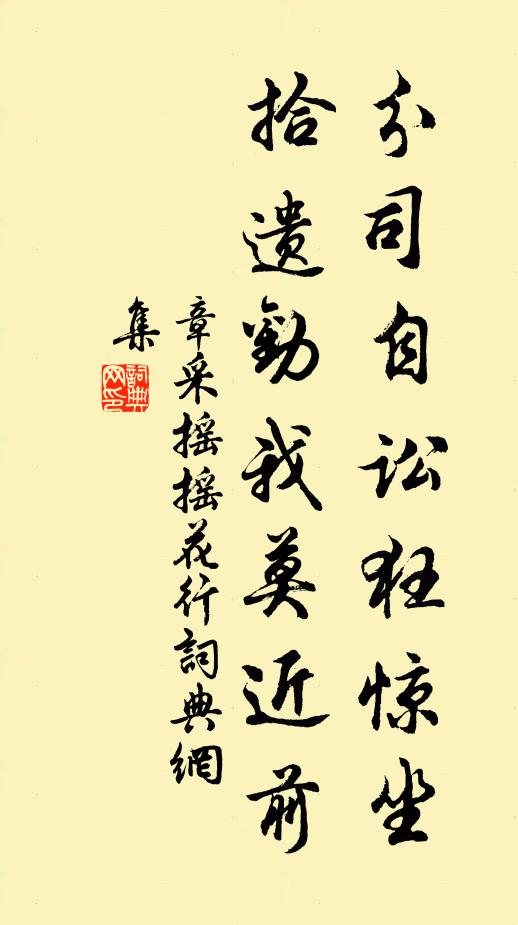 分司自讼狂惊坐
拾遗劝我莫近前
章采摇摇花行詞典網
集
詞典
网印